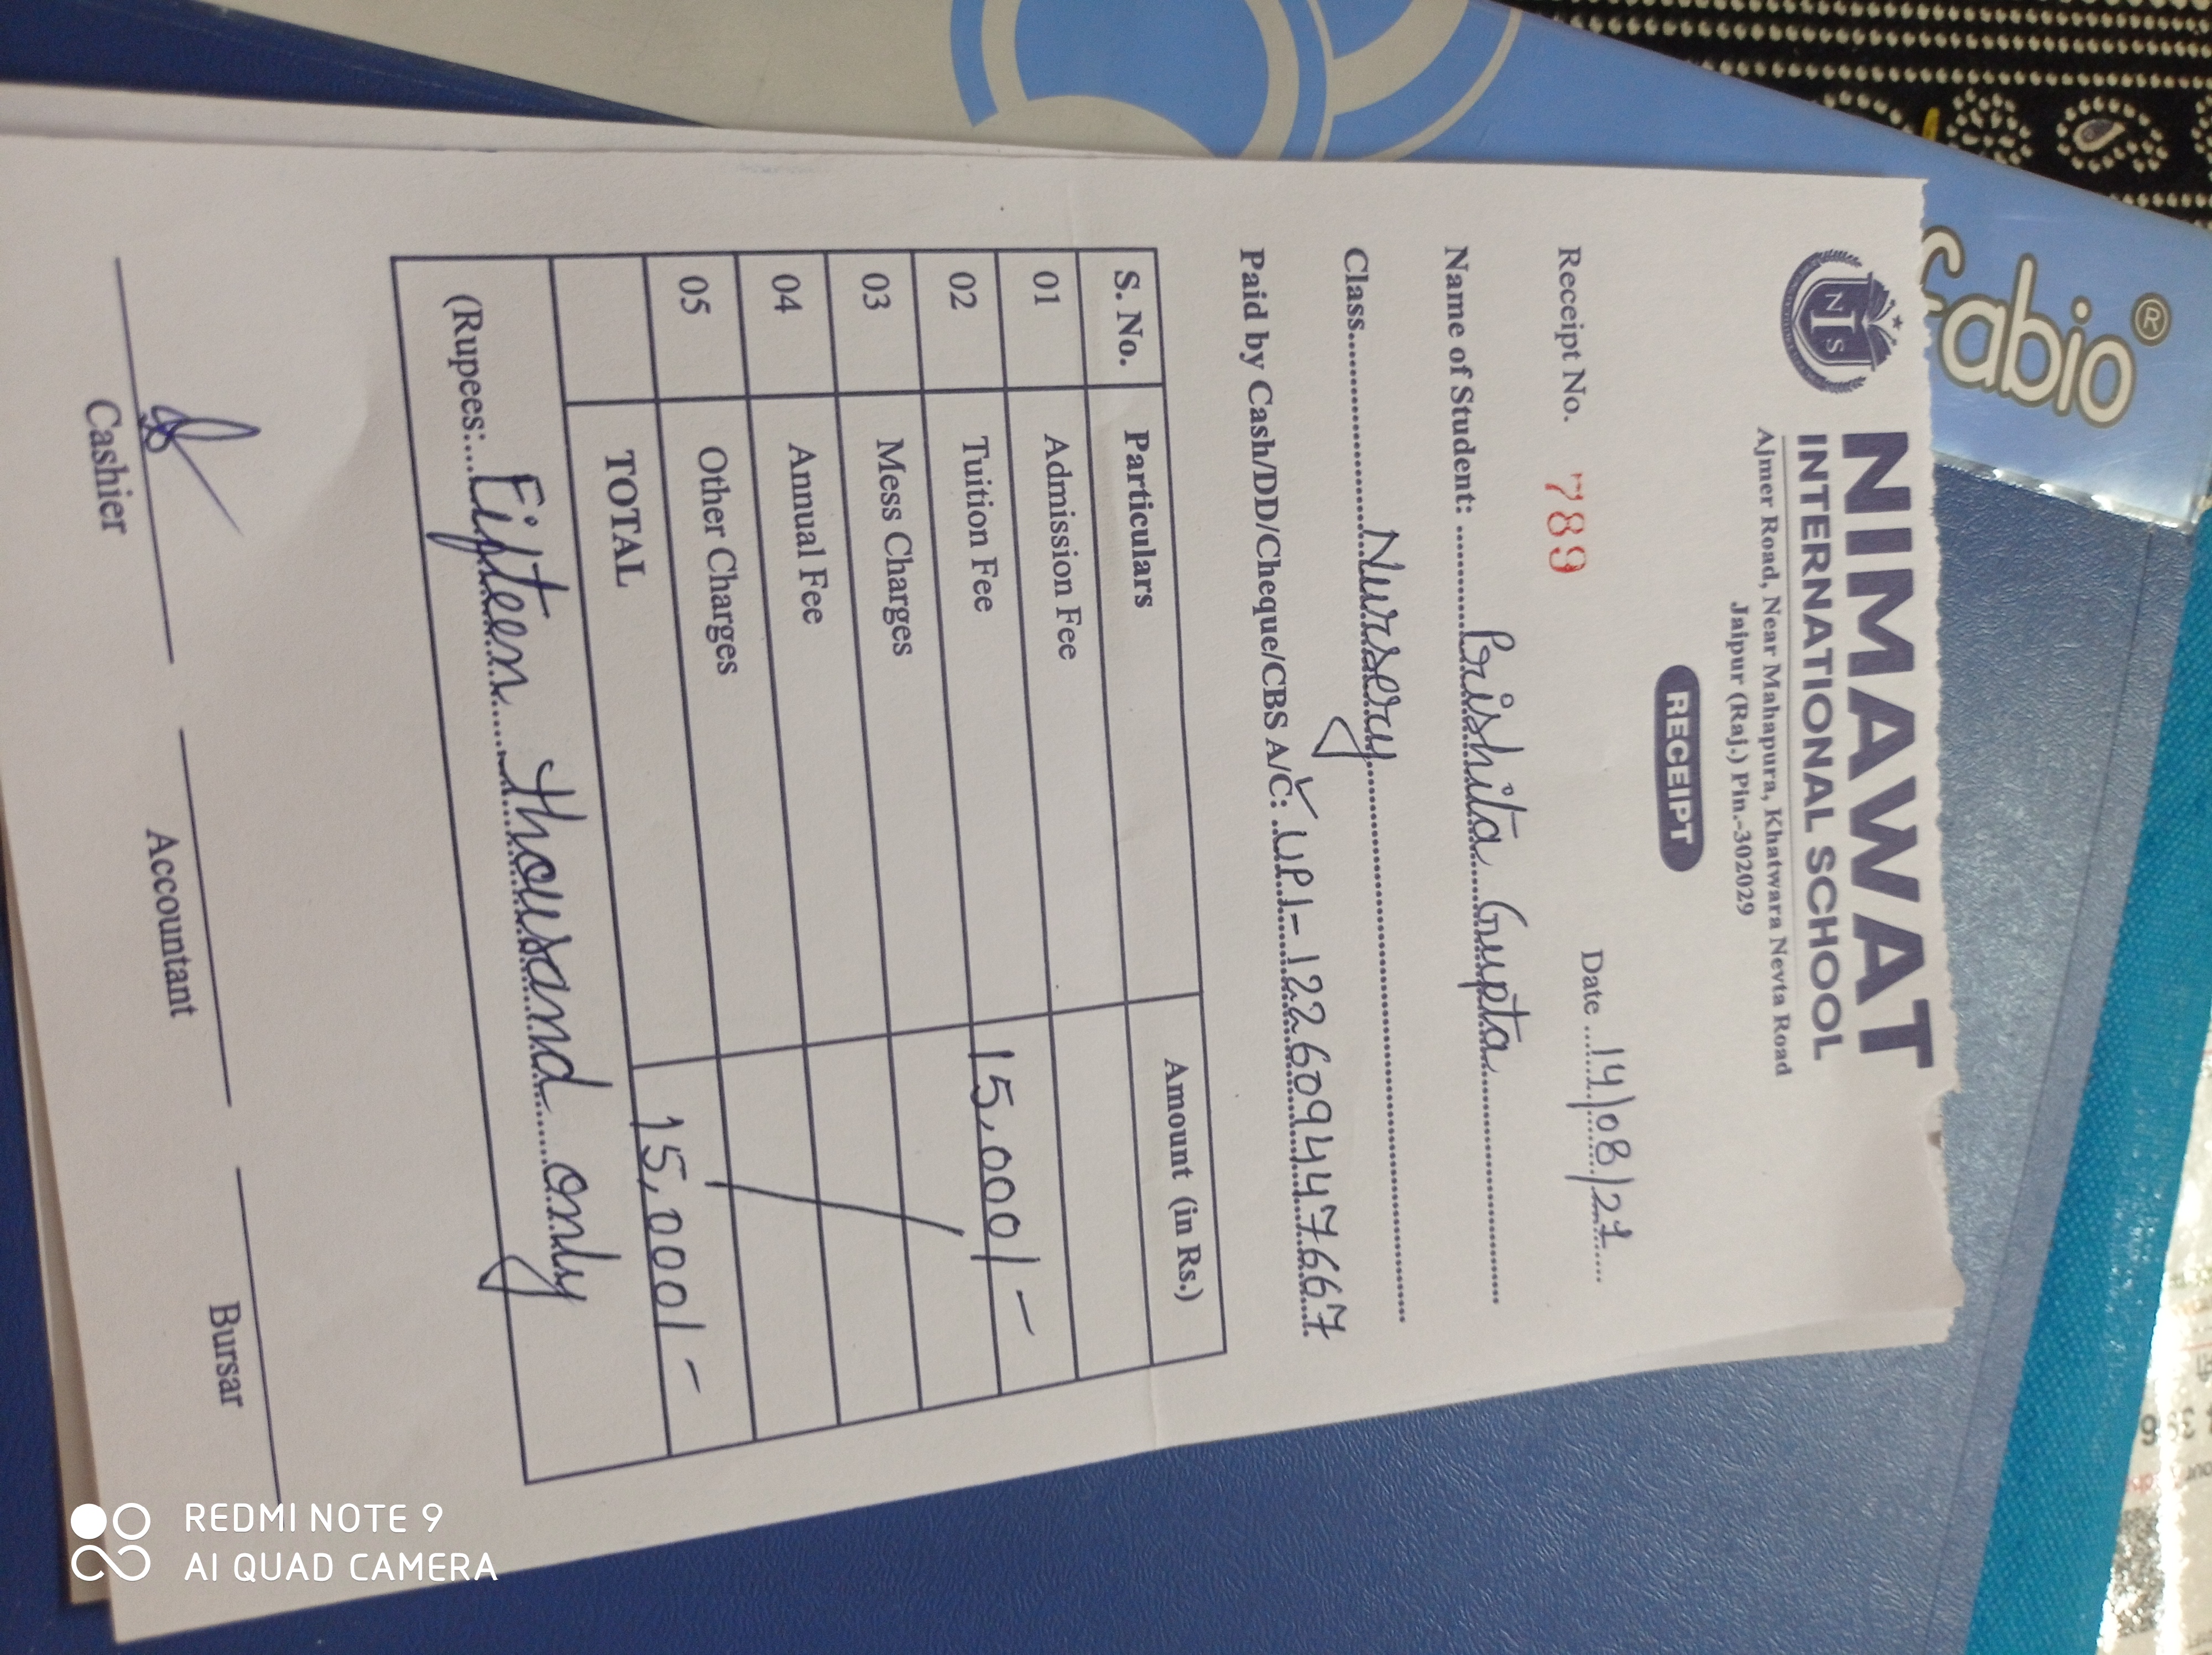 fabio®
NIMAWAT
INTERNATIONAL SCHOOL
Ajmer Road, Near Mahapura, Khatwara Nevta Road
Jaipur (Raj.) Pin.-302029
NIS
RECEIPT
Receipt No. 789 Date 14/08/21
Name of Student: Prishita Gupta
Class Nursery
Paid by Cash/DD/Cheque/CBS A/C: UPI-122609447667
S. No. Particulars Amount (in Rs.)
01 Admission Fee
02 Tuition Fee 15,000/-
03 Mess Charges
04 Annual Fee
05 Other Charges
TOTAL 15,000/-
(Rupees: Fifteen thousand only
Cashier Accountant Bursar
REDMI NOTE 9
AI QUAD CAMERA